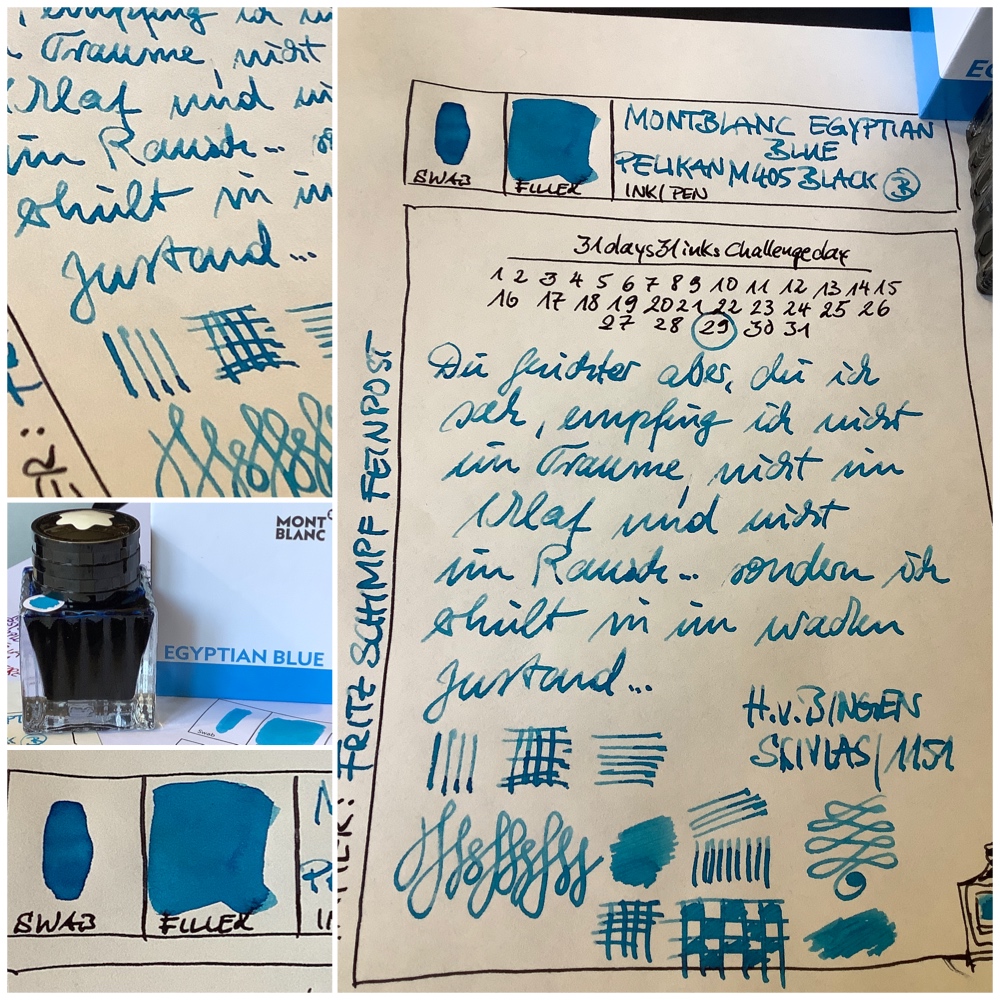 empfing ich
Traume, nicht
Schlaf und
im Rausch... so
erhielt sie im
Zustand...
MONT
BLANC
EGYPTIAN BLUE
Swab
SWAB
FILLER
SWAB
FILLER
MONTBLANC EGYPTIAN
BLUE
PELIKAN M405 BLACK B
INK/PEN
31days31inksChallengeday
1 2 3 4 5 6 7 8 9 10 11 12 13 14 15
16 17 18 19 20 21 22 23 24 25 26
27 28 29 30 31
Die Gesichter aber, die ich
sah, empfing ich nicht
im Traume, nicht im
Schlaf und nicht
im Rausch... sondern ich
erhielt sie im wachen
Zustand...
H.v.BINGEN
SCIVIAS/1151
FRITZ SCHIMPF FEINPOST